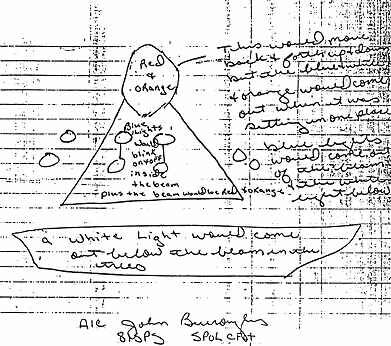 Red
&
orange
This would move
back & forth up + down
but the blue + white
& orange would come
out when it was
sitting in one place
Blue
lights
would
blink
on/off
inside
the beam
plus the beam would be Red & orange
blue lights
would come out
of the
+ the white
light below
a white Light would come
out below the beam in the
trees
A1C John Burroughs
81 SPS